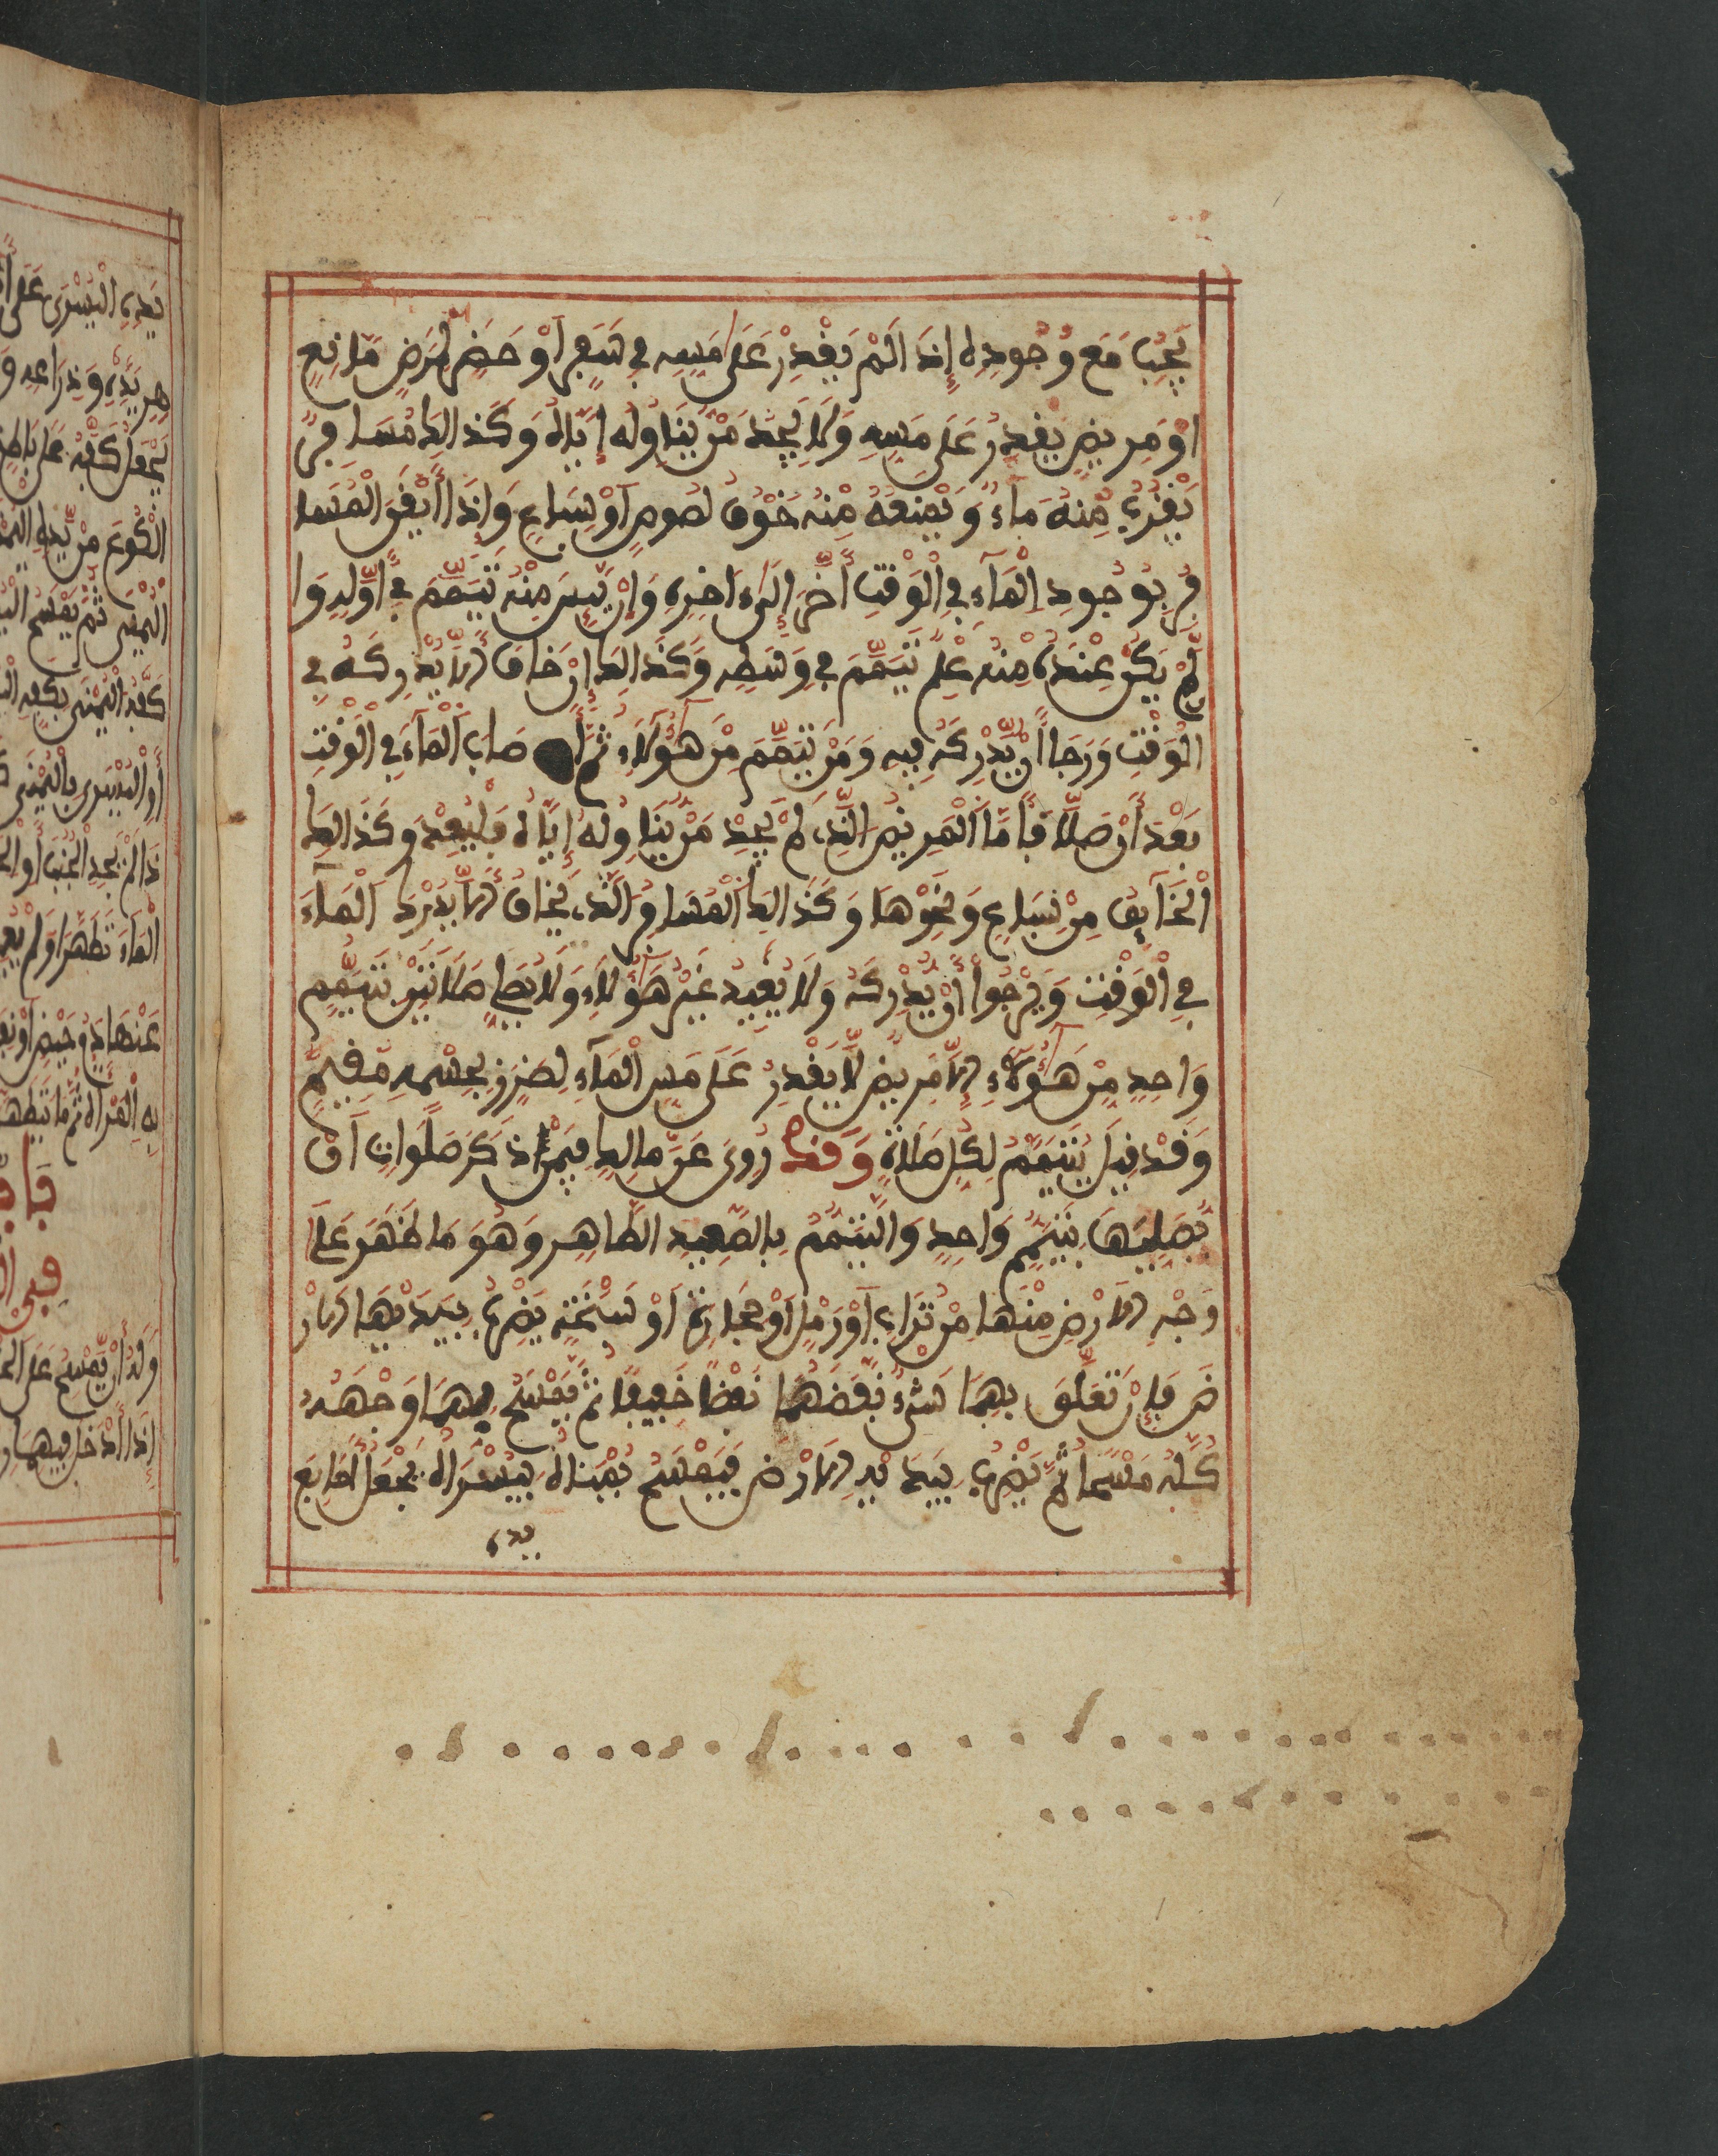 يَجِبُ مَعَ وُجُودِهِ إِذَا لَمْ يَقْدِرْ عَلَى مَسِّهِ فِي سَفَرٍ أَوْ حَضَرٍ لِمَرَضٍ مَّانِعٍ
أَوْ مَرِيضٍ يَقْدِرُ عَلَى مَسِّهِ وَلَا يَجِدُ مَنْ يُّنَاوِلُهُ إِيَّاهُ وَكَذَالِكَ مُسَافِرٌ
يَقْرُبُ مِنْهُ مَاءٌ وَيَمْنَعُهُ مِنْهُ خَوْفُ لُصُوصٍ أَوْ سِبَاعٍ وَإِذَا أَيْقَنَ الْمُسَا
فِرُ بِوُجُودِ الْمَآءِ فِي الْوَقْتِ أَخَّرَ إِلَىٰ ءَاخِرِهِ وَإِنْ يَّئِسَ مِنْهُ تَيَمَّمَ فِي أَوَّلِهِ وَإ
لَّمْ يَكُنْ عِنْدَهُ مِنْهُ عِلْمٌ تَيَمَّمَ فِي وَسَطِهِ وَكَذَالِكَ إِنْ خَافَ أَلَّا يُدْرِكَهُ فِي
الْوَقْتِ وَرَجَا أَنْ يُّدْرِكَهُ فِيهِ وَمَنْ تَيَمَّمَ مِنْ هَؤُلَاءِ ثُمَّ أَصَابَ الْمَآءَ فِي الْوَقْتِ
بَعْدَ أَنْ صَلَّا فَأَمَّا الْمَرِيضُ الَّذِي لَمْ يَجِدْ مَنْ يُّنَاوِلُهُ إِيَّاهُ فَلْيُعِدْ وَكَذَالِكَ
الْخَآئِفُ مِنْ سِبَاعٍ وَنَحْوِهَا وَكَذَالِكَ الْمُسَافِرُ الَّذِي يَخَافُ أَلَّا يُدْرِكَ الْمَآءَ
فِي الْوَقْتِ وَيَرْجُوا أَنْ يُّدْرِكَهُ وَلَا يُعِيدُ غَيْرُ هَؤُلَاءِ وَلَا يُصَلِّي صَلَاتَيْنِ بِتَيَمُّمٍ
وَاحِدٍ مِّنْ هَؤُلَاءِ إِلَّا مَرِيضٌ لَّا يَقْدِرُ عَلَى مَسِّ الْمَآءِ لِضَرَرٍ بِجِسْمِهِ مُقِيمٍ
وَقَدْ قِيلَ يَتَيَمَّمُ لِكُلِّ صَلَاةٍ وَقَدْ رُوِيَ عَنْ مَّالِكٍ فِيمَنْ ذَكَرَ صَلَوَاتٍ أَنْ
يُّصَلِّيَهَا بِتَيَمُّمٍ وَاحِدٍ وَالتَّيَمُّمُ بِالصَّعِيدِ الطَّاهِرِ وَهُوَ مَا ظَهَرَ عَلَى
وَجْهِ الْأَرْضِ مِنْهَا مِنْ تُرَابٍ أَوْ رَمْلٍ أَوْ حِجَارَةٍ أَوْ سَبْخَةٍ يَضْرِبُ بِيَدَيْهِ الْأَرْ
ضَ فَإِنْ تَعَلَّقَ بِهِمَا شَيْءٌ نَّفَضَهُمَا نَفْضًا خَفِيفًا ثُمَّ يَمْسَحُ بِهِمَا وَجْهَهُ
كُلَّهُ مَسْحًا ثُمَّ يَضْرِبُ بِيَدَيْهِ الْأَرْضَ فَيَمْسَحُ يُمْنَاهُ بِيُسْرَاهُ يَجْعَلُ أَصَابِعَ
يده